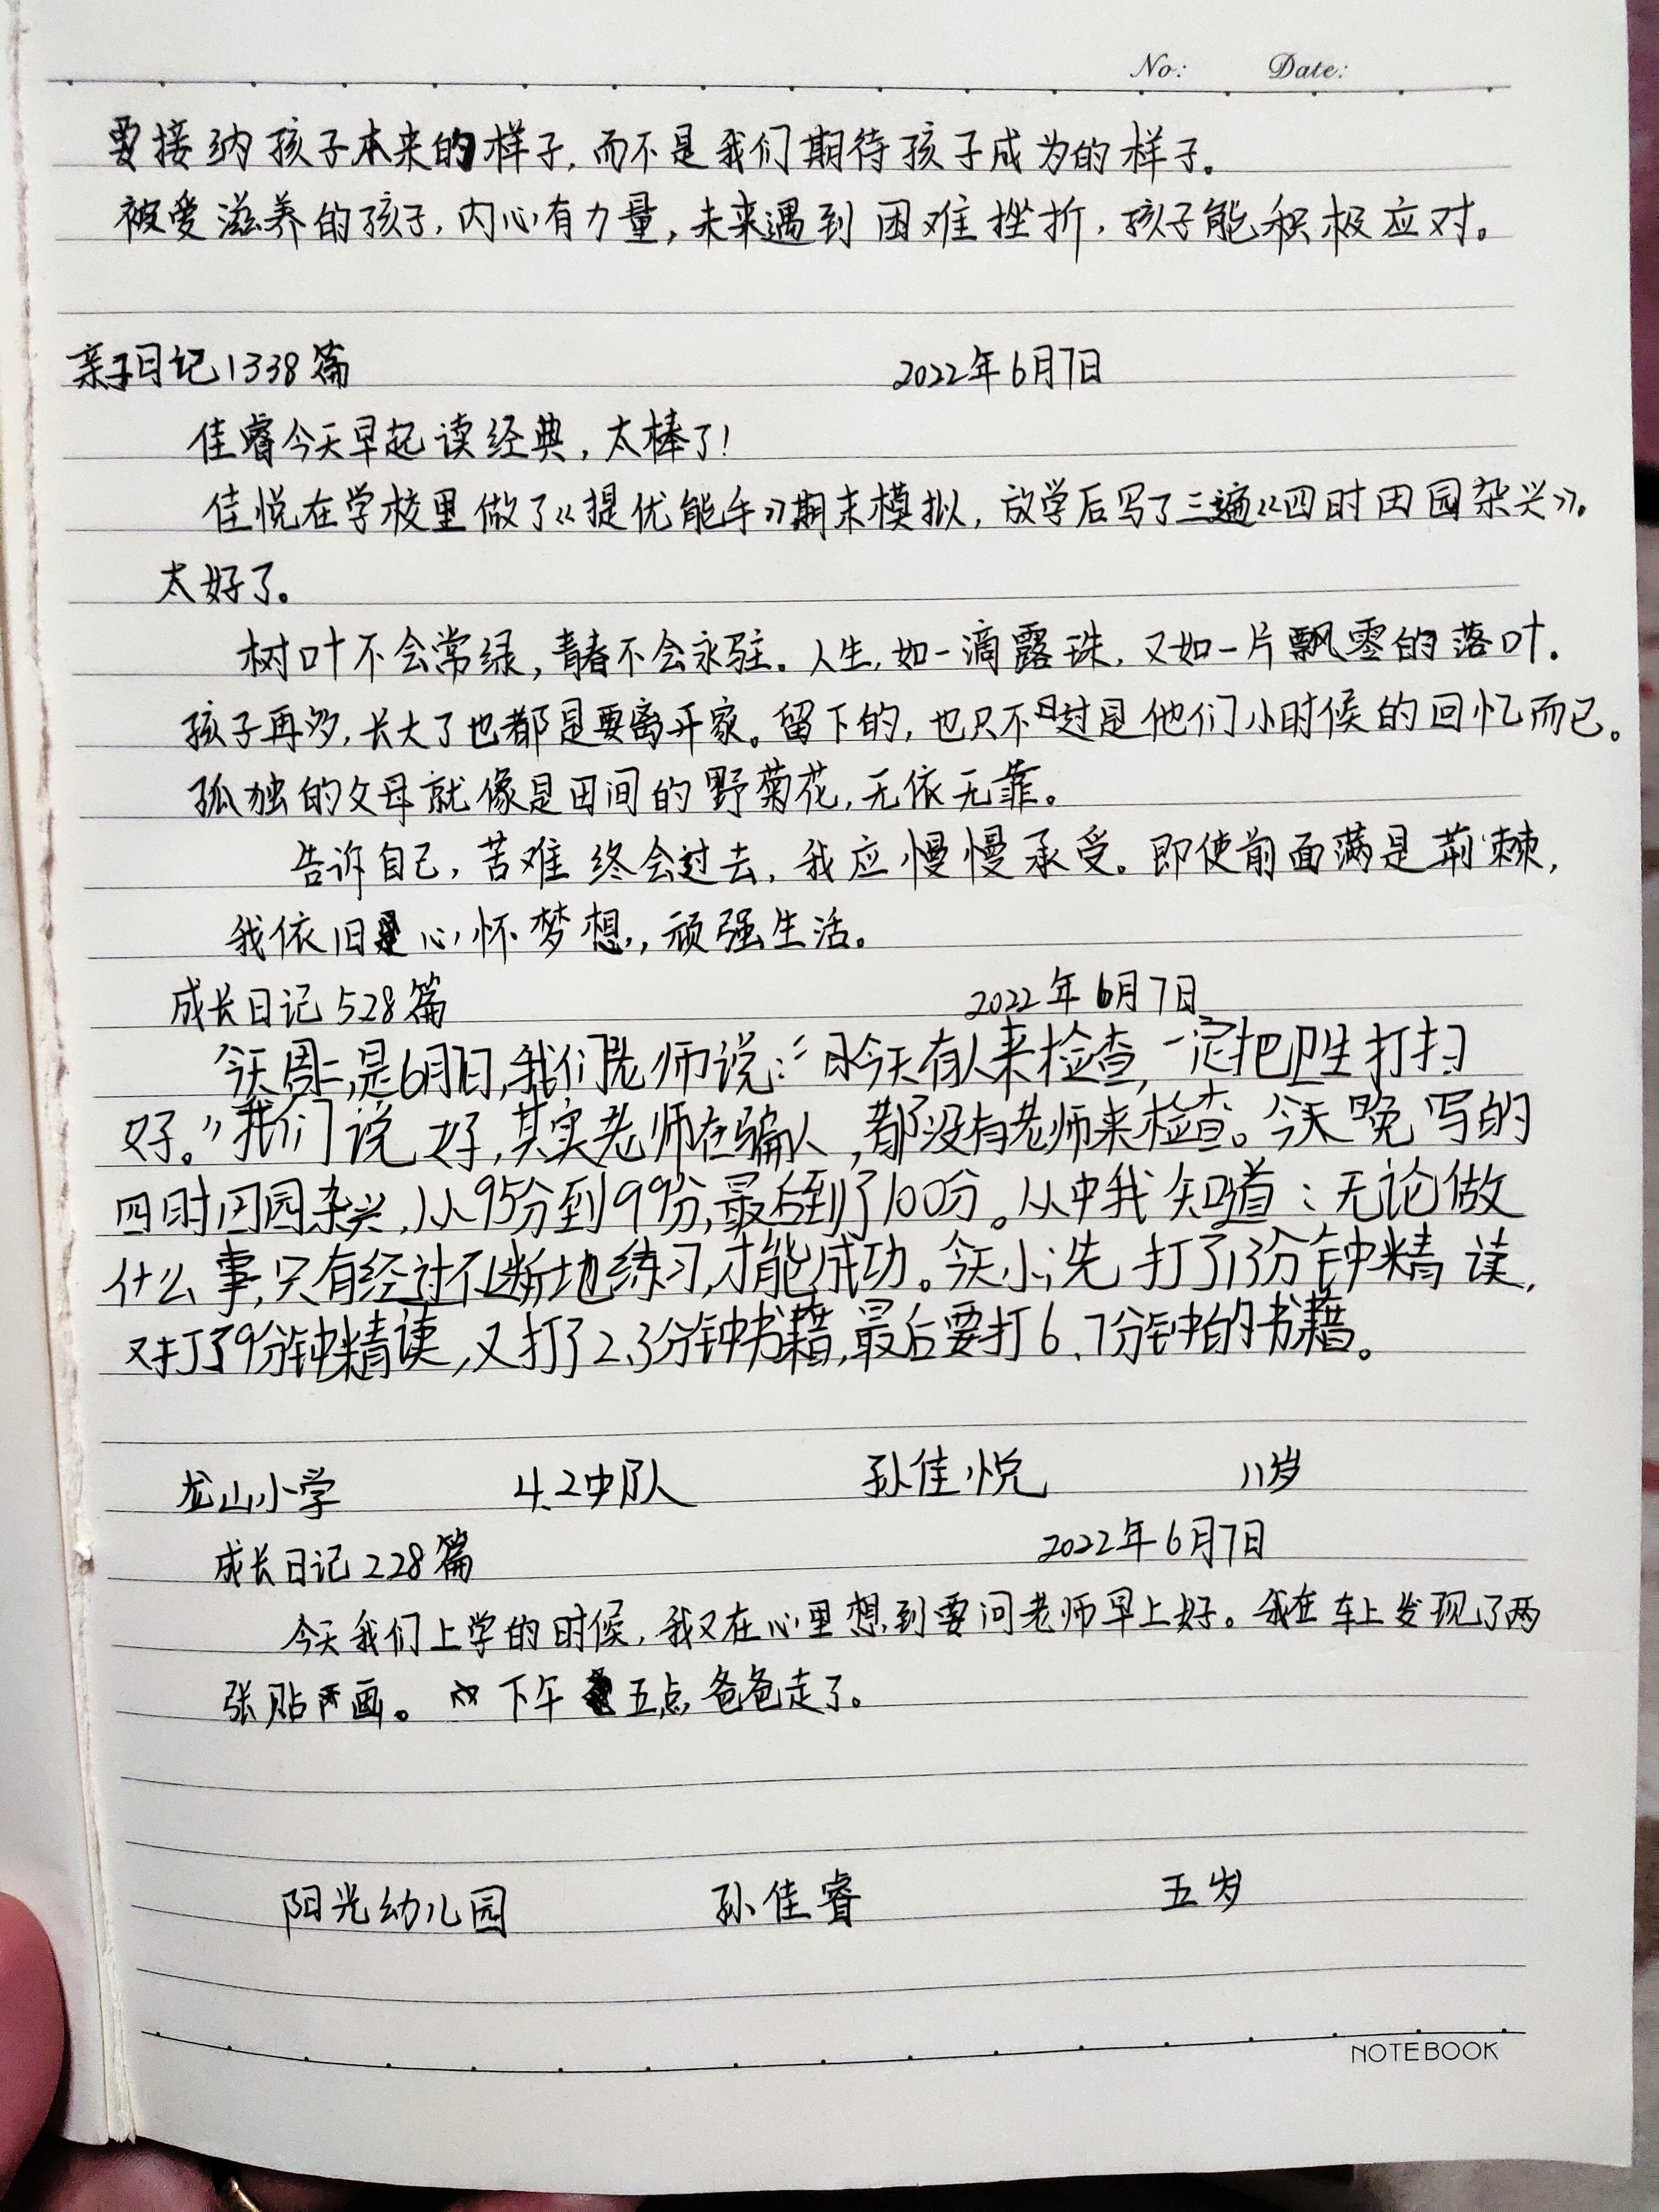 No: Date:
要接纳孩子本来的样子,而不是我们期待孩子成为的样子。
被爱滋养的孩子,内心有力量,未来遇到困难挫折,孩子能积极应对。
亲子日记1338篇 2022年6月7日
佳睿今天早起读经典,太棒了!
佳悦在学校里做了《提优能手》期末模拟,放学后写了三遍《四时田园杂兴》。
太好了。
树叶不会常绿,青春不会永驻。人生,如一滴露珠,又如一片飘零的落叶.
孩子再多,长大了也都是要离开家。留下的,也只不过是他们小时候的回忆而已。
孤独的父母就像是田间的野菊花,无依无靠。
告诉自己,苦难终会过去,我应慢慢承受。即使前面满是荆棘,
我依旧心怀梦想,顽强生活。
成长日记528篇 2022年6月7日
今天周二,是6月7日,我们老师说:“今天有人来检查,一定把卫生打扫
好。”我们说好,其实老师在骗人,都没有老师来检查。今天晚写的
四时田园杂兴,从95分到99分,最后到了100分。从中我知道:无论做
什么事,只有经过不断地练习,才能成功。今天小冼打了13分钟精读,
又打了9分钟精读,又打了2、3分钟书籍,最后要打6、7分钟的书籍。
龙山小学 4.2中队 孙佳悦 11岁
成长日记228篇 2022年6月7日
今天我们上学的时候,我又在心里想到要问老师早上好。我在车上发现了两
张贴画。下午五点,爸爸走了。
阳光幼儿园 孙佳睿 五岁
NOTEBOOK